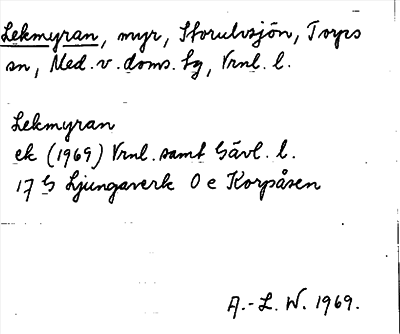 Lekmyran, myr, Storulvsjön, Torps
sn, Med. v. doms. sg, Vrnl. l.
Lekmyran
ek (1969) Vrnl. samt Gävl. l.
17 G Ljungaverk 0 e Korpåsen
A.-L. W. 1969.